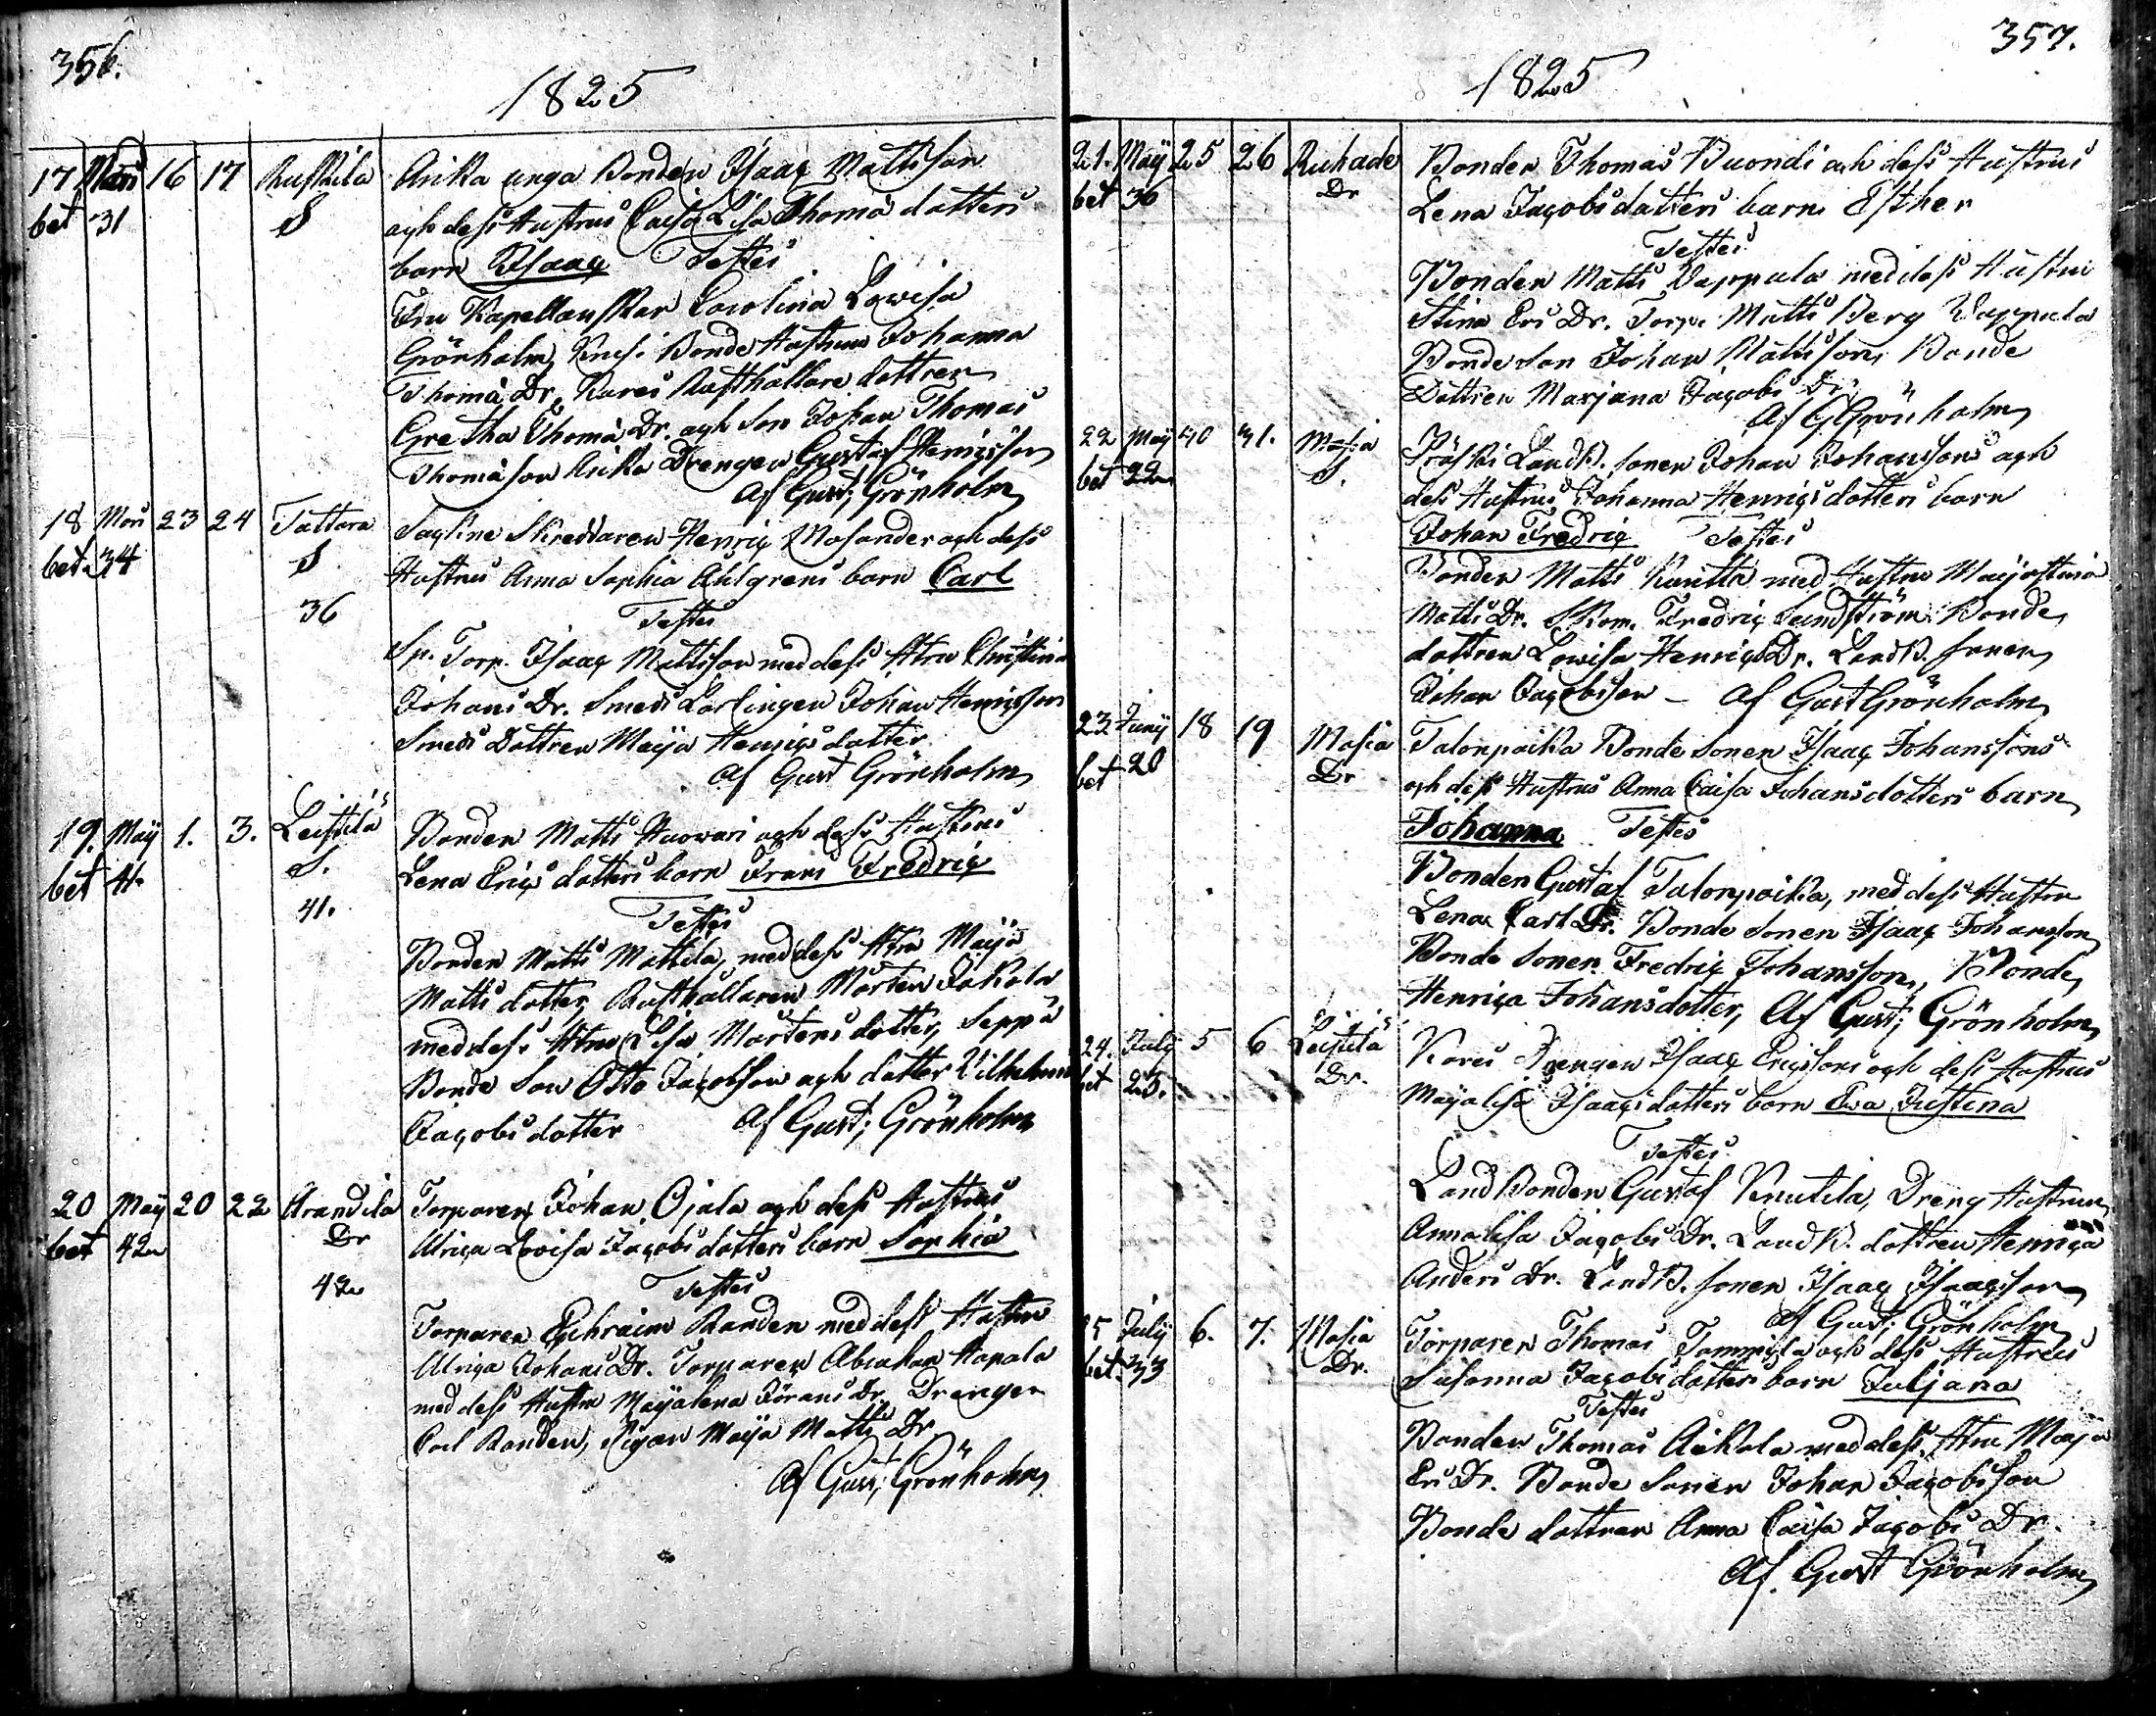 356.
1825
17 Mars 16 17 Ruskila Arika unga Bonden Isaac Mattsson
bet 31 S och dess Hustrus Caisa Lisa Thomä dotters
barn Isaac Testes
Fru Kapellanskan Carolina Lovisa
Grönholm, Bonde Hustrun Johanna
Thomä Dr, Kares Rusthållare dottren
Gretha Thomä Dr. och Son Johan Thomas
Thomäson Arika Drengen Gustaf Henricsson
Af Gust; Grönholm
18 Mars 23 24 Tattara Skreddaren Henric Masander och dess
bet 34 S Hustrus Anna Sophia Ahlgrens barn Carl
36 Testes
Sp. Torp. Isaac Mattsson med dess Htru Christina
Johans Dr. Smeds Lärlingen Johan Henricsson
Smeds Dottren Maija Henrics dotter
Af Gust Grönholm
19. May 1. 3. Leistilä Bonden Matts Haowari och dess Hustrus
bet S. Lena Erics dotters barn Frans Fredric
41. Testes
Bonden Matts Mattila, med dess Htru Maija
Matts dotter, Rusthållaren Mårten Jakola
med dess Htru Lisa Mårtens dotter, Seppä
Bonde Son Otto Jacobsson och dotter Vilhelmina
Jacobs dotter Af Gust; Grönholm
20 May 20 22 Arandila Torparen Johan Ojala och dess Hustrus
bet 42 Dr Ulrica Lovisa Jacobs dotters barn Sophia
42 Testes
Torparen Ephraim Randen med dess Hustru
Ulrica Johans Dr. Torparen Abraham Hapala
med dess Hustru Maijalena Görans Dr, Drengen
Carl Randen, Pigan Maija Matts Dr
Af Gust; Grönholm
357.
1825
21. May 25 26 Ruhade Bonden Thomas Buondi och dess Hustrus
bet 36 Dr Lena Jacobs dotters barn Esther
Testes
Bonden Matts Vappula med dess Hustru
Stina Ers Dr. Torp. Matts Berg Vappula
Bonde Son Johan Mattsson, Bonde
Dottren Marjana Jacobs Dr,
Af G Grönholm
22 May 30 31. Masia Landb. sonen Johan Johanssons och
bet 22 S. dess Hustrus Johanna Henrics dotters barn
Johan Fredric Testes
Bonden Matts Kuritta med Hustru Maijastina
Matts Dr. Skom. Fredric Sundström Bonde
dottren Lovisa Henrics Dr. Landb. sonen
Johan Jacobsson – Af Gust Grönholm
23 Juny 18 19 Masia Talonpoika Bonde Sonen Isaac Johanssons
bet 20 Dr och dess Hustrus Anna Caisa Johans dotters barn
Johanna Testes
Bonden Gustaf Talonpoika, med dess Hustru
Lena Carl Dr. Bonde Sonen Isaac Johansson
Bonde Sonen Fredric Johansson, Bonde
Henrica Johansdotter, Af Gust; Grönholm
24. July 5 6 Leistilä Kares Drengen Isaac Ericssons och dess Hustrus
bet 20. Dr. Maijalisa Isaacs dotters barn Eva Justina
Testes
Landbonden Gustaf Knutila, Dreng Hustrun
Annalisa Jacobs Dr. Landb. dottren Henrica
Anders Dr. Landb. sonen Isaac Isaacsson
Af Gust; Grönholm
25 July 6. 7. Masia Torparen Thomas Tommila och dess Hustrus
bet. 33 Dr. Susanna Jacobs dotters barn Juljana
Testes
Bonden Thomas Arkola med dess Htru Maija
Ers Dr. Bonde Sonen Johan Jacobsson
Bonde dottren Anna Caisa Jacobs Dr.
Af. Gust Grönholm